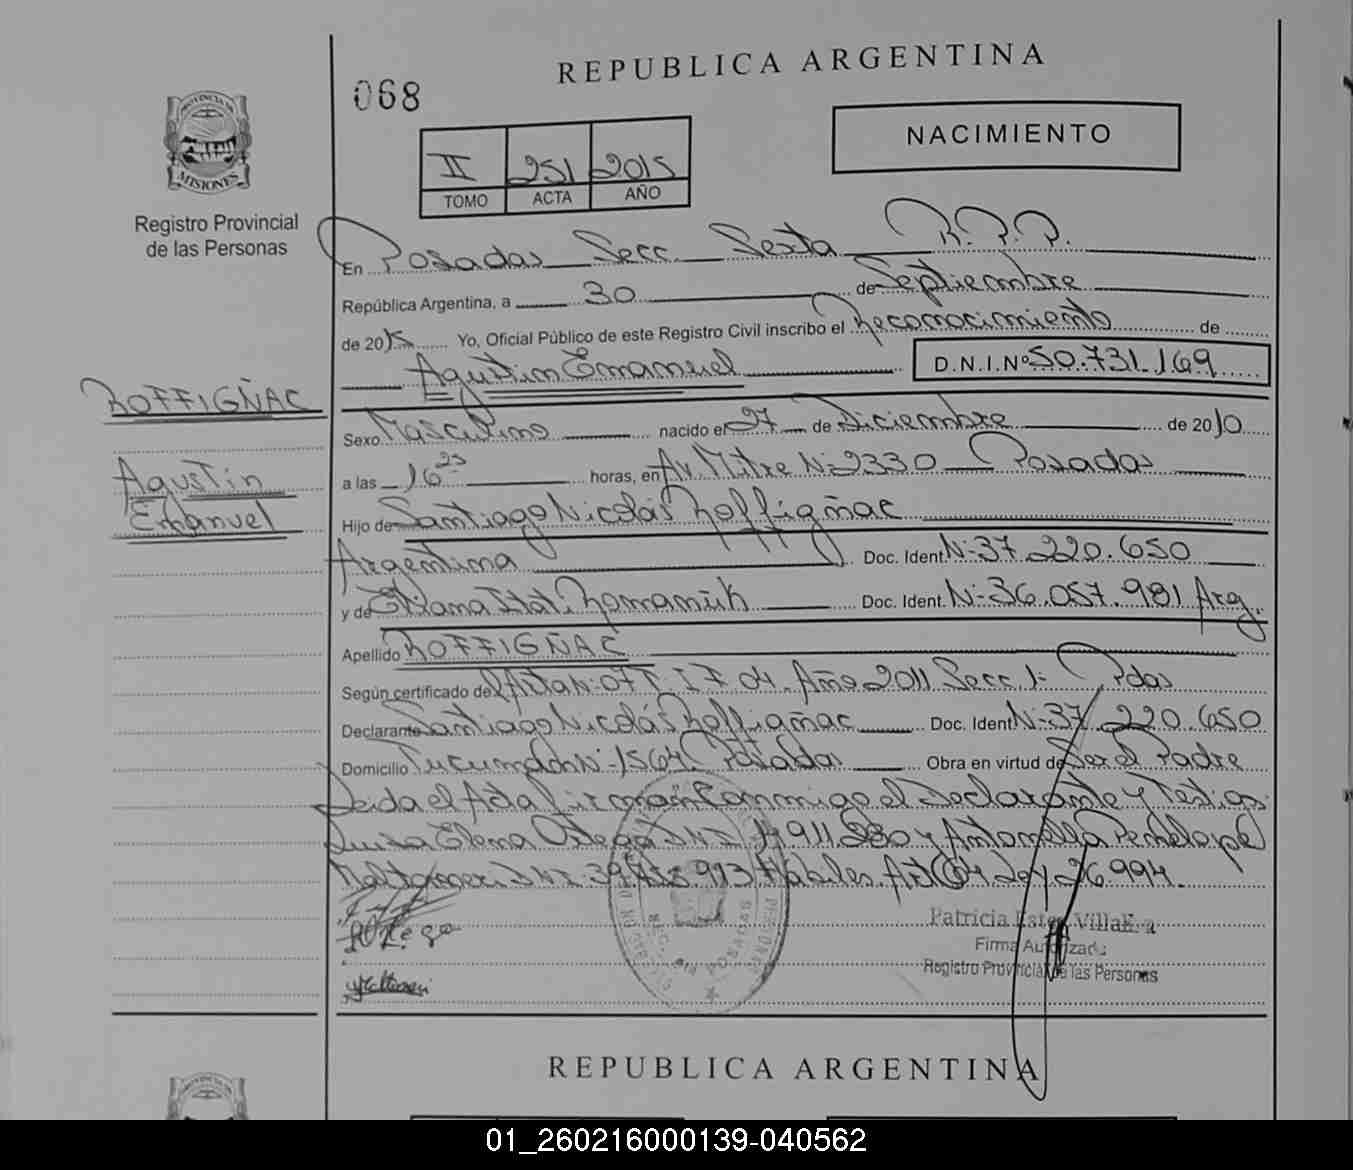 REPUBLICA ARGENTINA
068
NACIMIENTO
II 251 2015
TOMO ACTA AÑO
PROVINCIA DE
MISIONES
Registro Provincial
de las Personas
En Posadas Secc. Sexta R.P.P.
República Argentina, a 30 de Septiembre
de 2015 Yo, Oficial Público de este Registro Civil inscribo el Reconocimiento de
Agustin Emanuel D.N.I.Nº 50.731.169
ROFFIGÑAC
Agustin
Emanuel
Sexo Masculino nacido el 27 de Diciembre de 2010
a las 16 23 horas, en Av. Mitre Nº 2330 Posadas
Hijo de Santiago Nicolás Roffigñac
Argentina Doc. Ident. Nº 37.220.650
y de Itatí Romaniuk Doc. Ident. Nº 36.057.981 Arg.
Apellido ROFFIGÑAC
Según certificado de Acta Nº 071 Año 2011 Secc. 1º Pdas
Declarante Santiago Nicolás Roffigñac Doc. Ident. Nº 37.220.650
Domicilio Tucumán Nº 1564 Posadas Obra en virtud de Ser el Padre
Leida el Acta firman Conmigo el Declarante y Testigos
Luisa Elena Ortega DNI 911.280 y Antonella Penelope
DNI 913 Habiles. Art 64 Ley 26.994.
Patricia Ester
Firma Autorizada
Registro Provincial de las Personas
POSADAS
REPUBLICA ARGENTINA
PROVINCIA DE
01_260216000139-040562